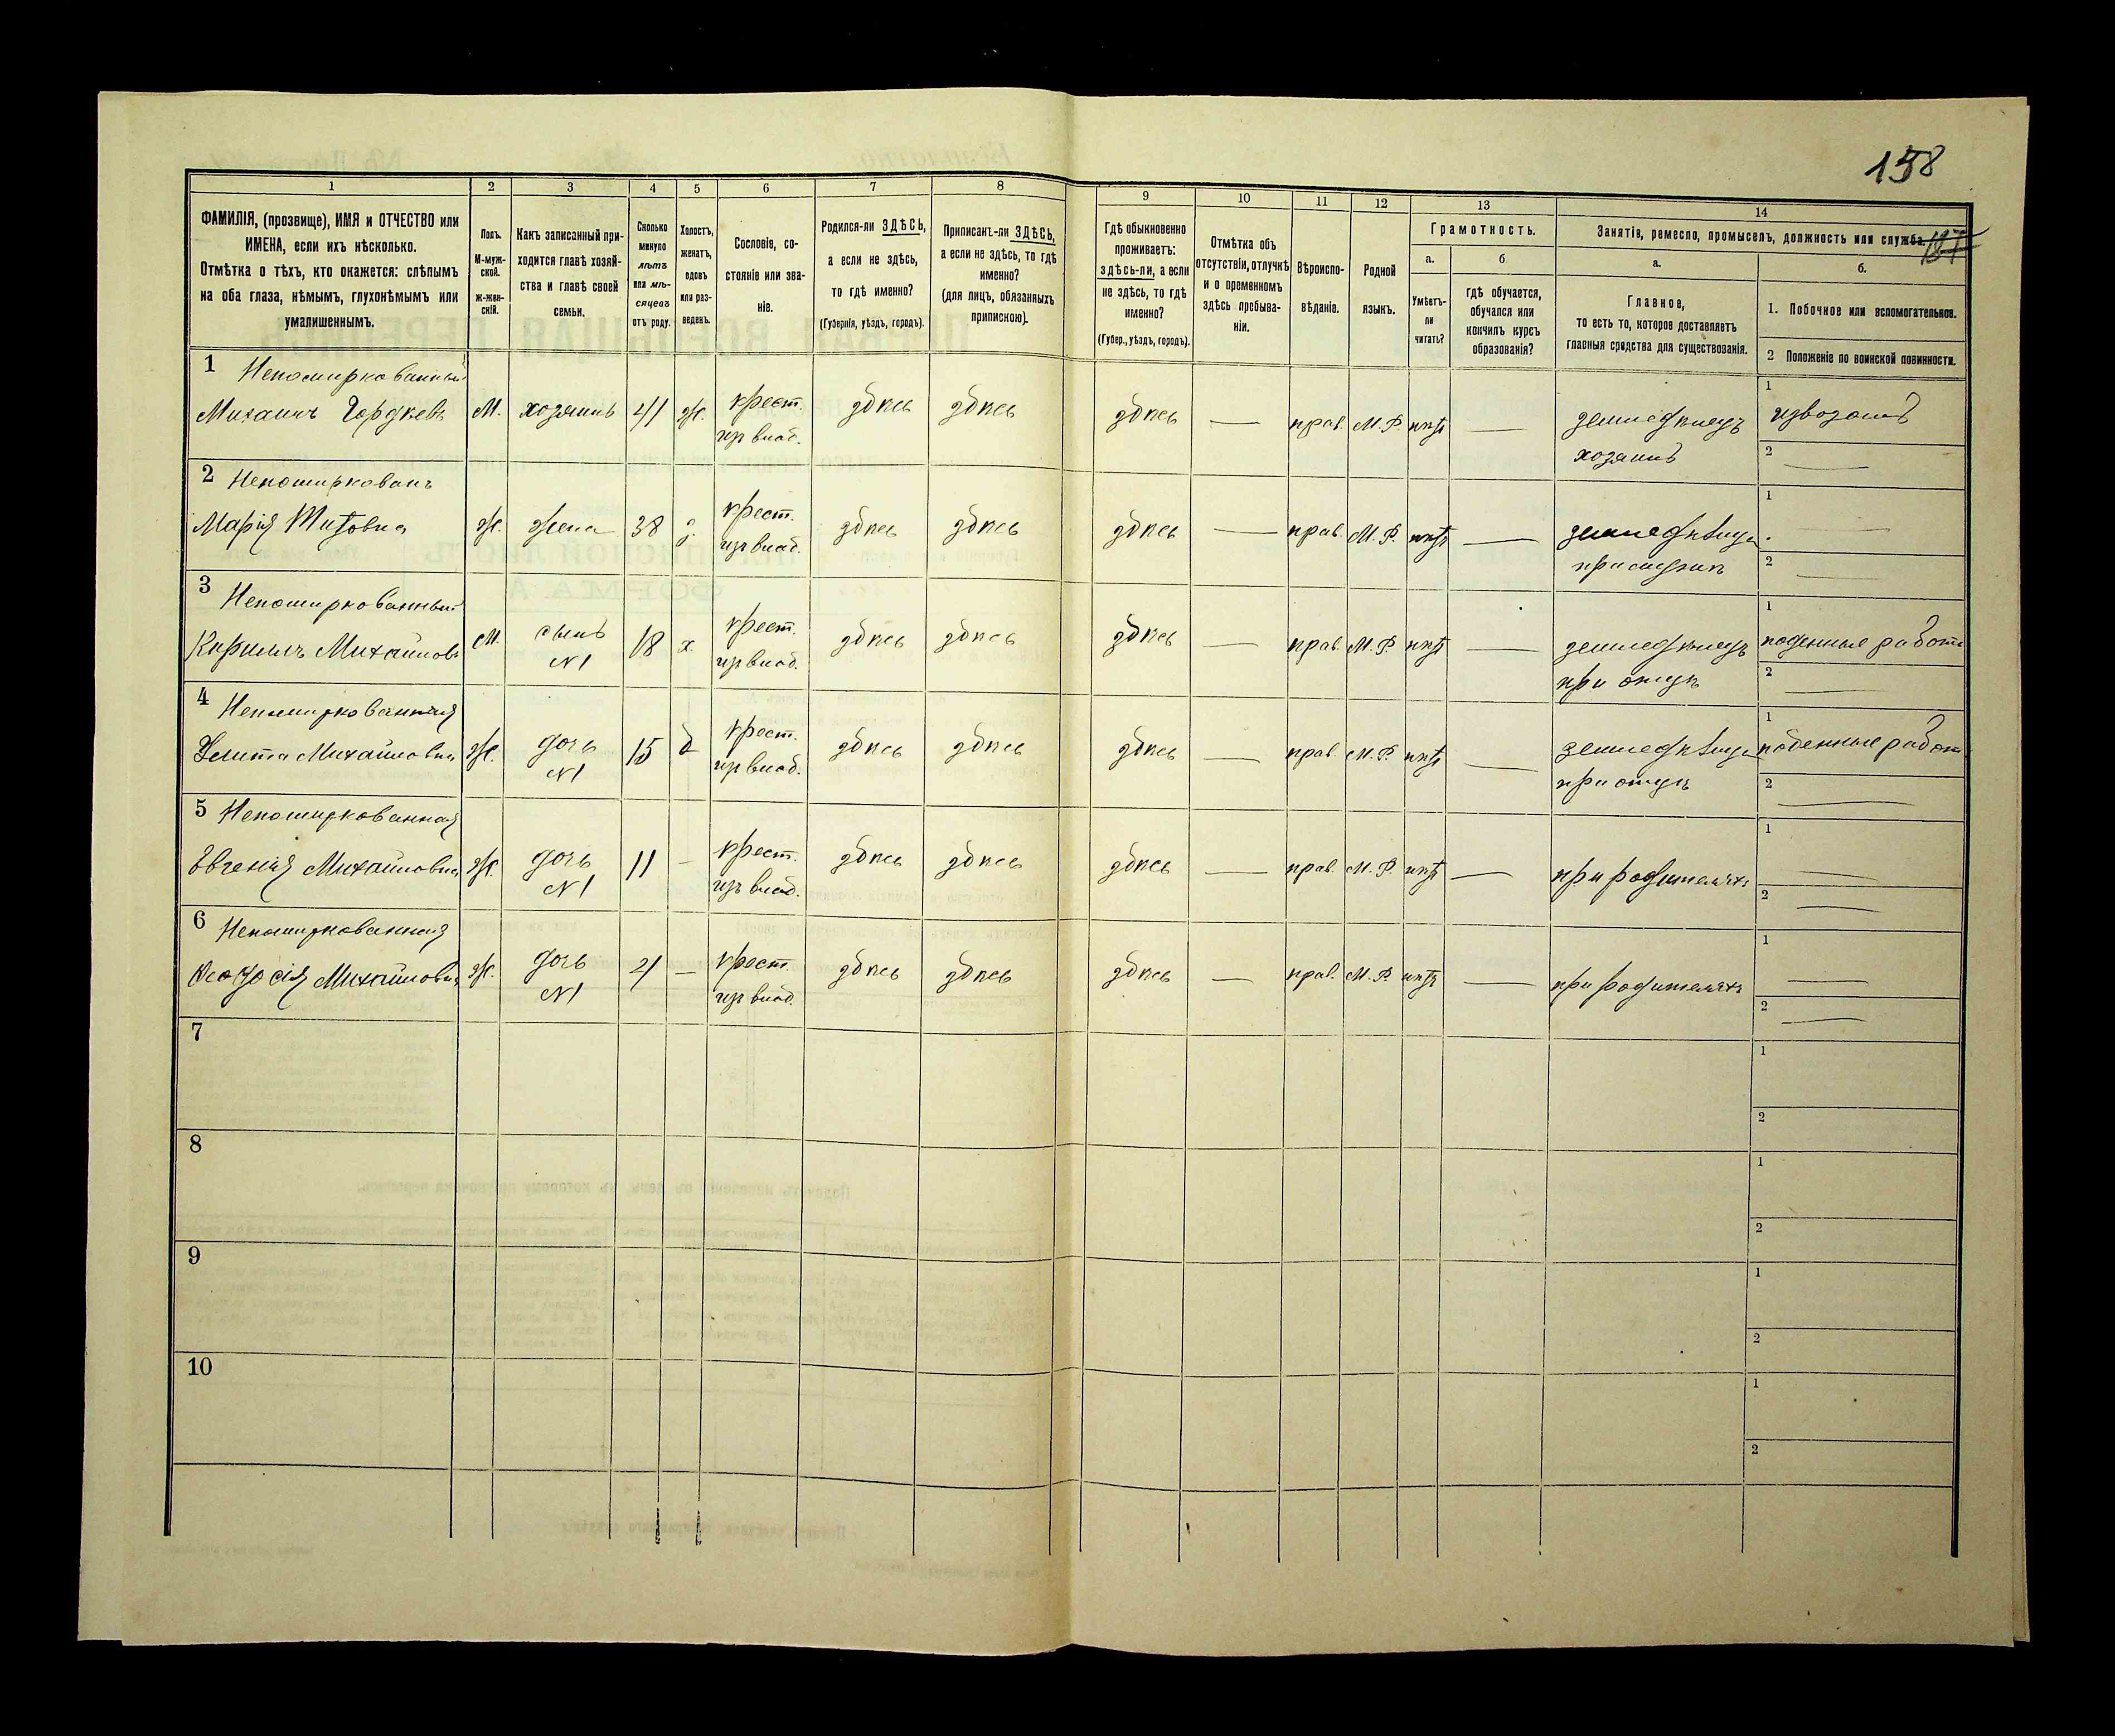 158
187
1
2
3
4
5
6
7
8
9
10
11
12
13
14
ФАМИЛІЯ, (прозвище), ИМЯ и ОТЧЕСТВО или
ИМЕНА, если ихъ нѣсколько.
Отмѣтка о тѣхъ, кто окажется: слѣпымъ
на оба глаза, нѣмымъ, глухонѣмымъ или
умалишеннымъ.
Полъ.
М-муж-
ской.
ж-жен-
скій.
Какъ записанный при-
ходится главѣ хозяй-
ства и главѣ своей
семьи.
Сколько
минуло
лѣтъ
или мѣ-
сяцевъ
отъ роду.
Холостъ,
женатъ,
вдовъ
или раз-
веденъ.
Сословіе, со-
стояніе или зва-
ніе.
Родился-ли ЗДѢСЬ,
а если не здѣсь,
то гдѣ именно?
(Губернія, уѣздъ, городъ).
Приписанъ-ли ЗДѢСЬ,
а если не здѣсь, то гдѣ
именно?
(для лицъ, обязанныхъ
припискою).
Гдѣ обыкновенно
проживаетъ:
здѣсь-ли, а если
не здѣсь, то гдѣ
именно?
(Губер., уѣздъ, городъ).
Отмѣтка объ
отсутствіи, отлучкѣ
и о временномъ
здѣсь пребыва-
ніи.
Вѣроиспо-
вѣданіе.
Родной
языкъ.
Грамотность.
а.
Умѣетъ-
ли
читать?
б
гдѣ обучается,
обучался или
кончилъ курсъ
образованія?
Занятія, ремесло, промыселъ, должность или служба.
а.
Главное,
то есть то, которое доставляетъ
главныя средства для существованія.
б.
1. Побочное или вспомогательное.
2 Положеніе по воинской повинности.
1 Непомиркованный
Михаилъ Гордѣевъ М. хозяинъ 41 ж. крест. из влад. здѣсь здѣсь здѣсь — прав. М.Р. нѣтъ — земледѣлецъ хозяинъ 1 извозомъ 2 —
2 Непомиркован
Марія Титовна ж. жена 38 з. крест. изъ влад. здѣсь здѣсь здѣсь — прав. М.Р. нѣтъ — земледѣлица при мужѣ 1 — 2 —
3 Непомиркованный
Кириллъ Михайловъ М. сынъ N1 18 х крест. изъ влад. здѣсь здѣсь здѣсь — прав. М.Р. нѣтъ — земледѣлецъ при отцѣ 1 поденные работы 2 —
4 Непомиркованная
Улита Михайловна ж. дочь N1 15 д крест. изъ влад. здѣсь здѣсь здѣсь — прав. М.Р. нѣтъ — земледѣлица при отцѣ 1 поденные работ 2 —
5 Непомиркованная
Евгенія Михайловна ж. дочь N1 11 — крест. изъ влад. здѣсь здѣсь здѣсь — прав. М.Р. нѣтъ — при родителяхъ 1 — 2 —
6 Непомиркованная
Ѳеодосія Михайловна ж. дочь N1 — крест. изъ влад. здѣсь здѣсь здѣсь — прав. М.Р. нѣтъ — при родителяхъ 1 — 2 —
7 1
2
8 1
2
9 1
2
10 1
2